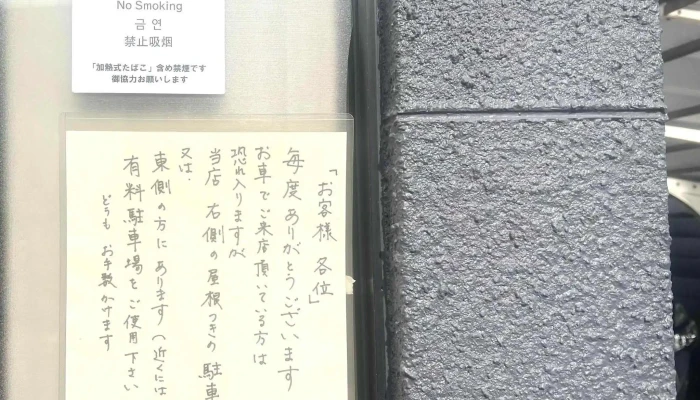 No Smoking
금 연
禁止吸烟
「加熱式たばこ」含め禁煙です
御協力お願いします
「お客様 各位」
毎度 ありがとうございます
お車でご来店頂いている方は
恐れ入りますが
当店 右側の屋根つきの 駐車
又は、
東側の方に あります(近くには
有料駐車場をご使用下さい
どうも お手数かけます